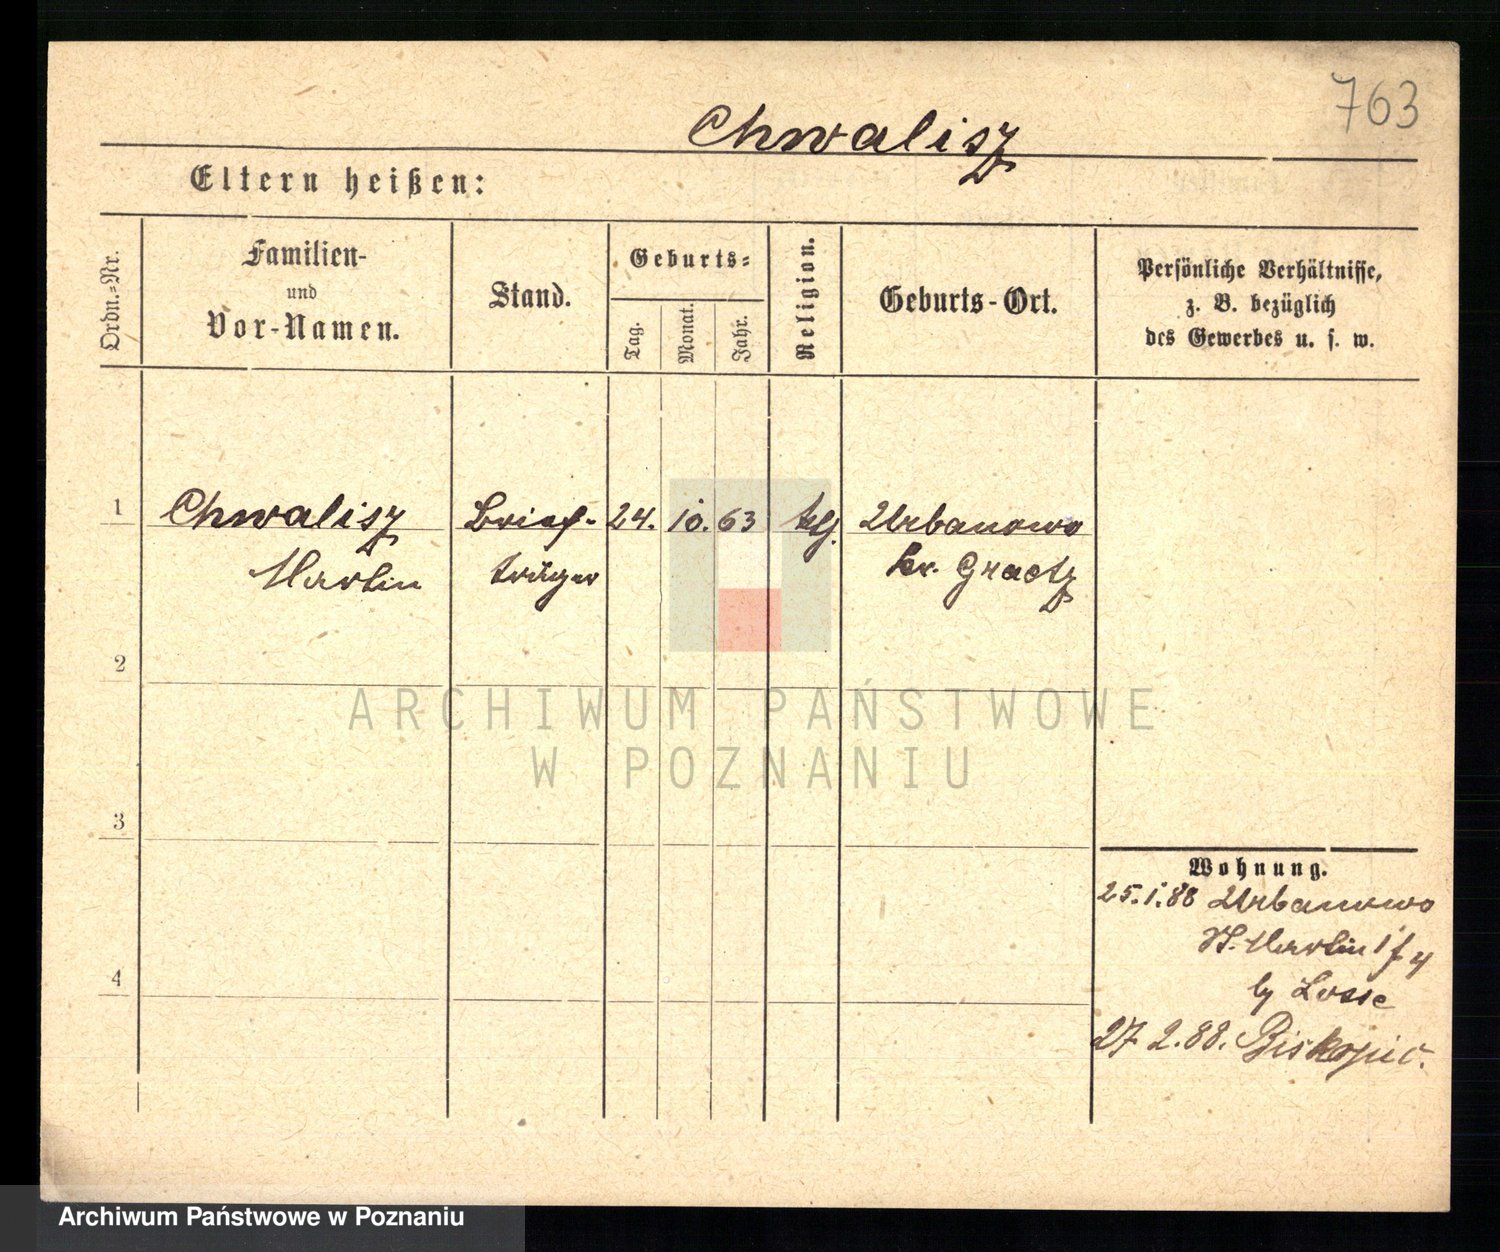 763
Chwalisz
Eltern heißen:
Ordn.-Nr.
Familien-
und
Vor-Namen.
Stand.
Geburts-
Tag.
Monat.
Jahr.
Religion.
Geburts-Ort.
Persönliche Verhältnisse,
z. B. bezüglich
des Gewerbes u. s. w.
1 Chwalisz Brief- 24. 10. 63 Urbanowo
Martin träger Kr. Graetz
2
ARCHIWUM PAŃSTWOWE
W POZNANIU
3
Wohnung.
25.1.88 Urbanowo
St. Martin
4
by Losse
27 2.88.
Archiwum Państwowe w Poznaniu